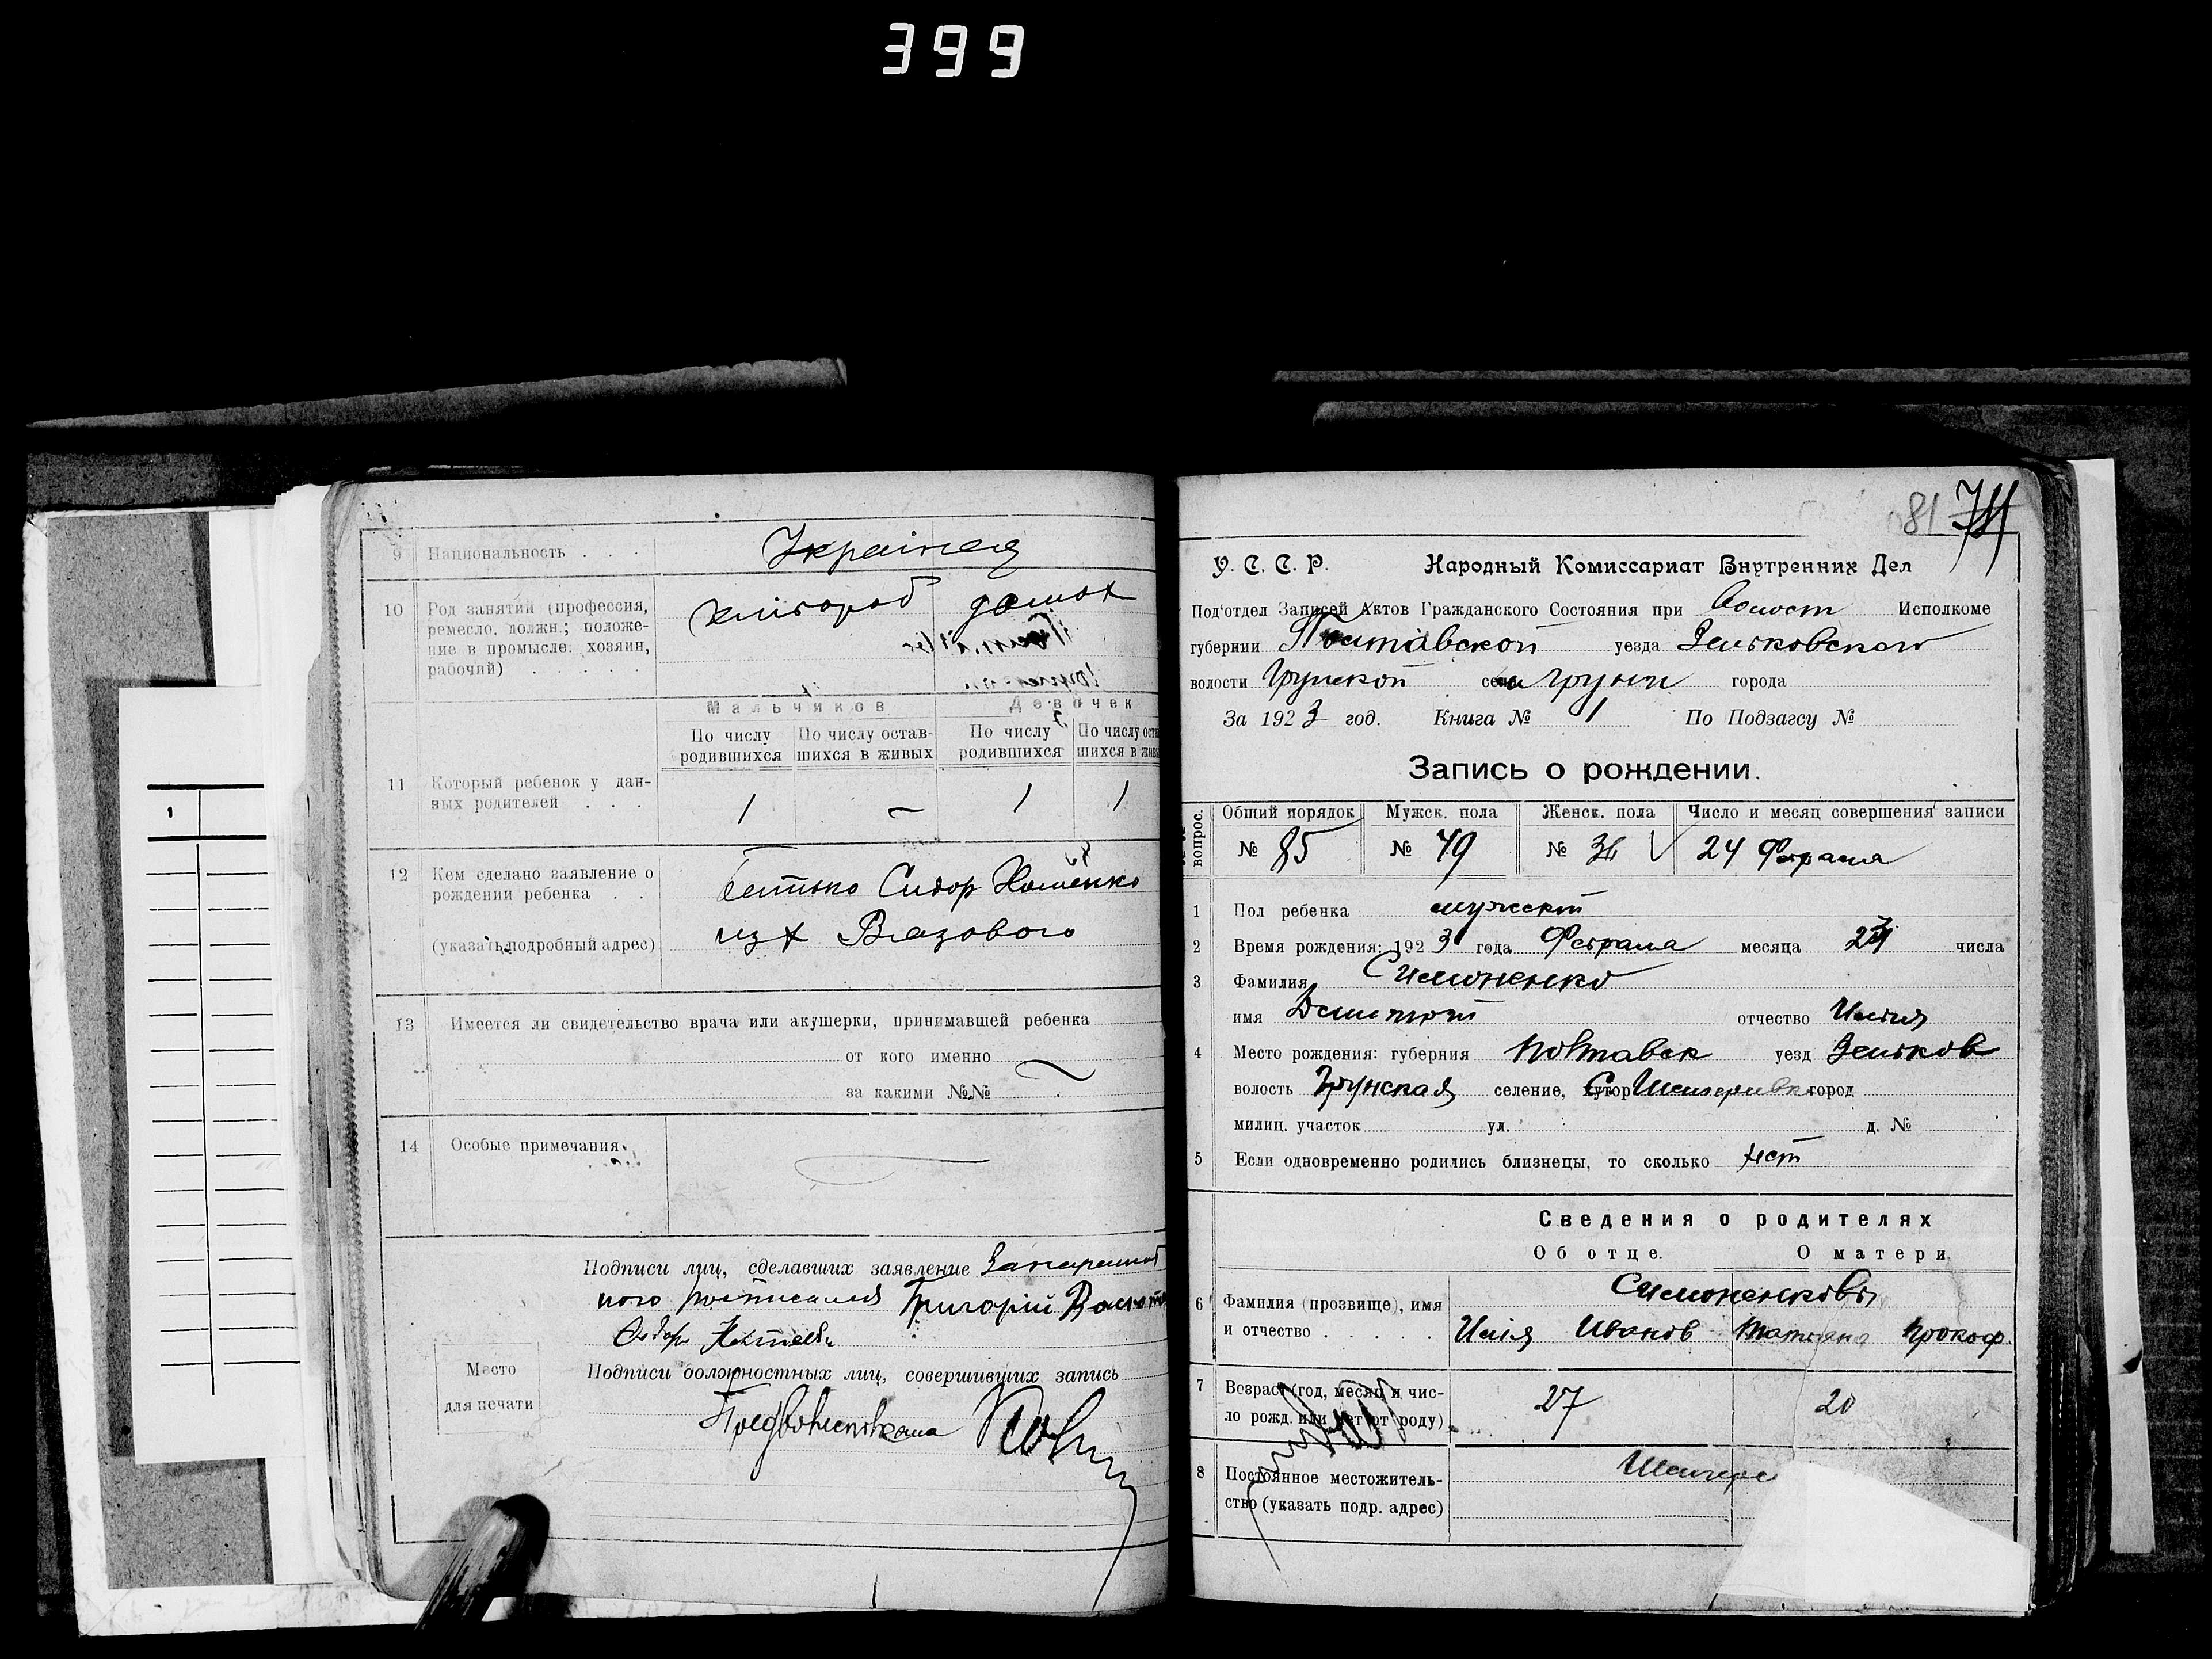 399
9 Национальность . . . Українец
10 Род занятий (профессия, хлібороб домох
ремесло, должн.; положе-
ние в промысле: хозяин,
рабочий) . . . .
Мальчиков Девочек
По числу По числу остав- По числу По числу оста
родившихся шихся в живых родившихся шихся в жив
11 Который ребенок у дан-
ных родителей . . . 1 — 1 1
12 Кем сделано заявление о
рождении ребенка . . батько Сидор
(указать подробный адрес) из х Вязового
13 Имеется ли свидетельство врача или акушерки, принимавшей ребенка
от кого именно
за какими №№
14 Особые примечания
Подписи лиц, сделавших заявление
ного росписался Григорій
Сидор
Место Подписи должностных лиц, совершивших запись
для печати
81
У. С. С. Р. Народный Комиссариат Внутренних Дел
Под'отдел Записей Актов Гражданского Состояния при Волост Исполкоме
губернии Полтавской уезда Зеньковского
волости Грунской села Груни города
За 1923 год. Книга № 1 По Подзагсу №
Запись о рождении.
вопрос. Общий порядок Мужск. пола Женск. пола Число и месяц совершения записи
№ 85 № 49 № 36 24 Февраля
1 Пол ребенка мужеск
2 Время рождения: 1923 года Февраля месяца числа
3 Фамилия Симоненко
имя отчество Ильия
4 Место рождения: губерния Полтавск уезд Зеньков
волость Грунская селение, хутор город
милиц. участок ул. д. №
5 Если одновременно родились близнецы, то сколько нет
Сведения о родителях
Об отце. О матери.
Симоненковы
6 Фамилия (прозвище), имя
и отчество . . . . . Илія Иванов Татьяна Прокоф.
7 Возраст (год, месяц и чис-
ло рожд. или лет от роду) 27 20
8 Постоянное местожитель-
ство (указать подр. адрес)